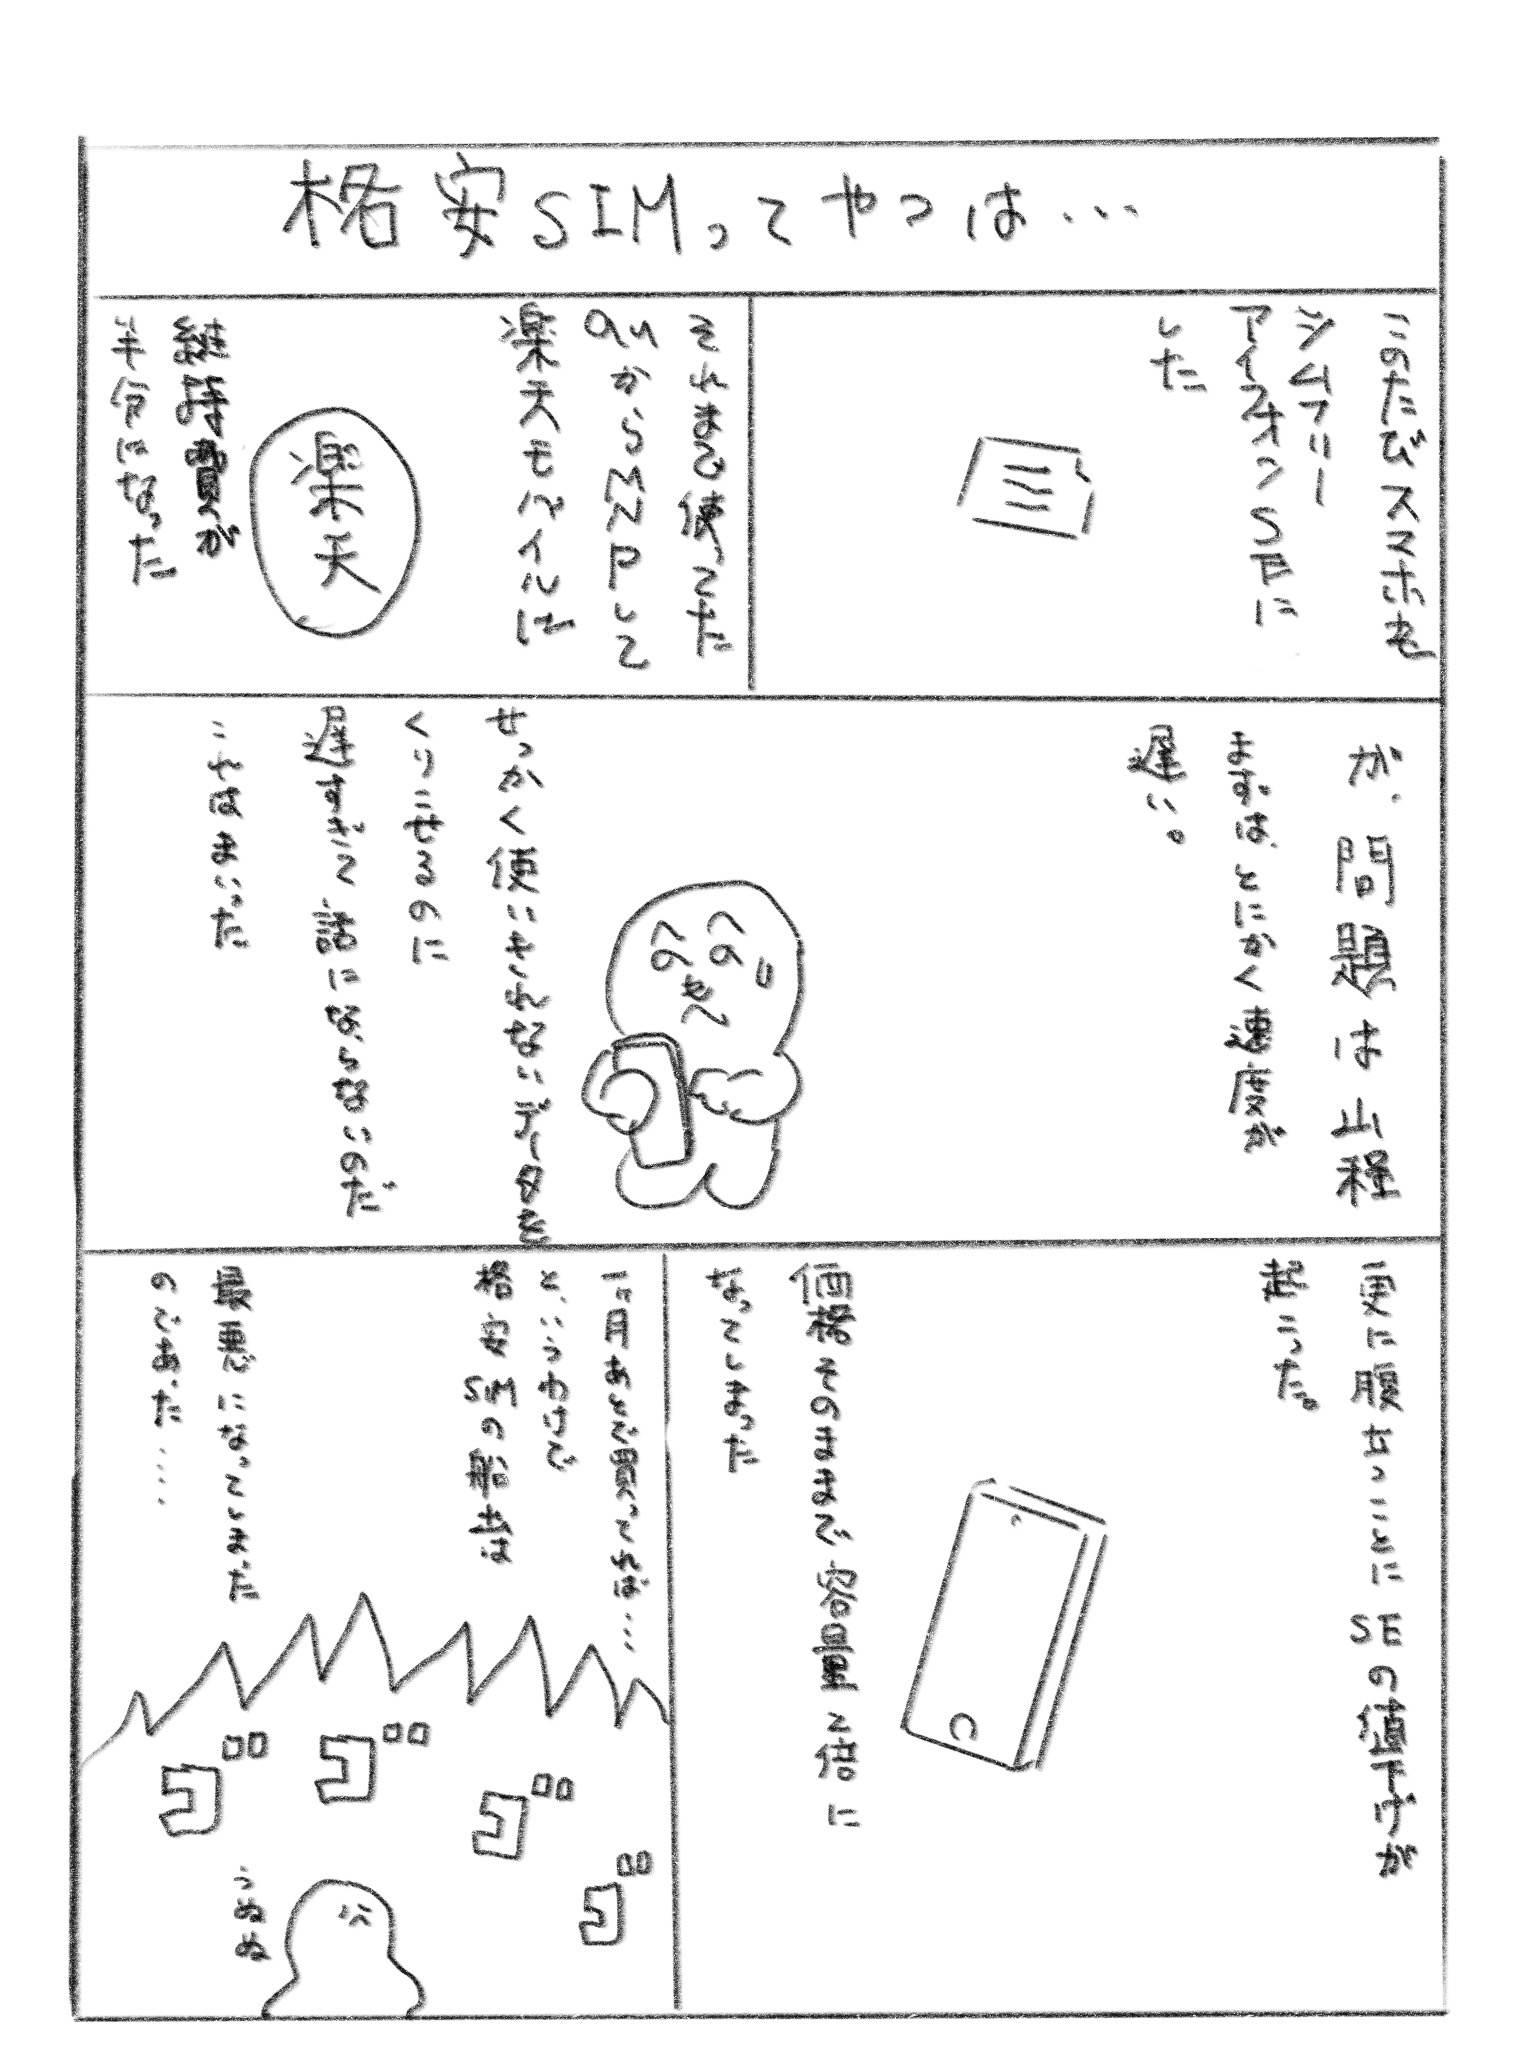 格安SIMってやつは…
このたびスマホを
シムフリー
アイフォンSEに
した
それまで使ってた
auからMNPして
楽天モバイルに
楽天
維持費が
半分になった
が、問題は山程
まずは、とにかく速度が
遅い。
へのへの
もへじ
せっかく使いきれないデータを
くりこせるのに
遅すぎて話にならないのだ
これはまいった
更に腹立つことにSEの値下げが
起こった。
価格そのままで容量2倍に
なってしまった
1ヶ月あとで買ってれば…
というわけで
格安SIMの評価は
最悪になってしまった
のであった……
ゴ
ゴ
ゴ
ゴ
うおお